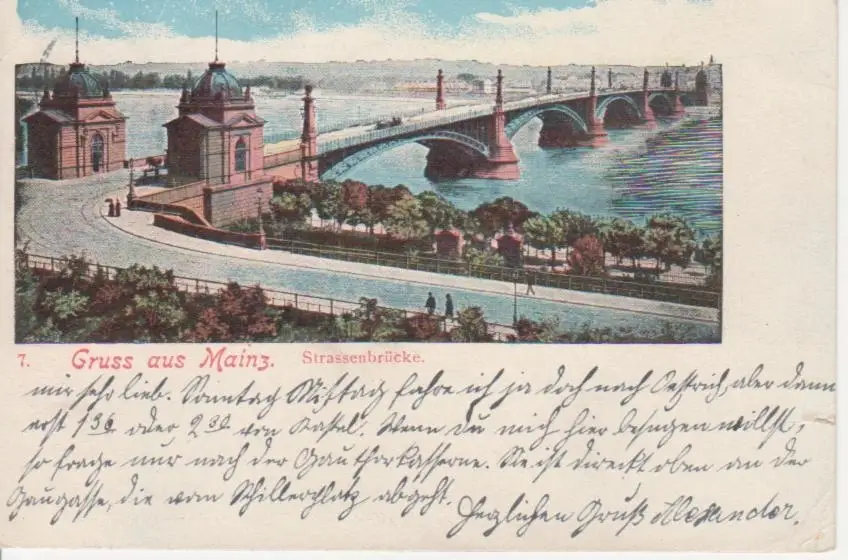 7. Gruss aus Mainz. Strassenbrücke.
mir sehr lieb. Sonntag Mittag fahre ich ja doch nach Oestrich, aber dann
erst 1 36 oder 2 30 von Kastel. Wenn du mich hier besuchen willst,
so frage nur nach der Gauthorkasserne. Sie ist direkt oben an der
Gaugasse, die vom Schillerplatz abgeht.
Herzlichen Gruß Alexander.